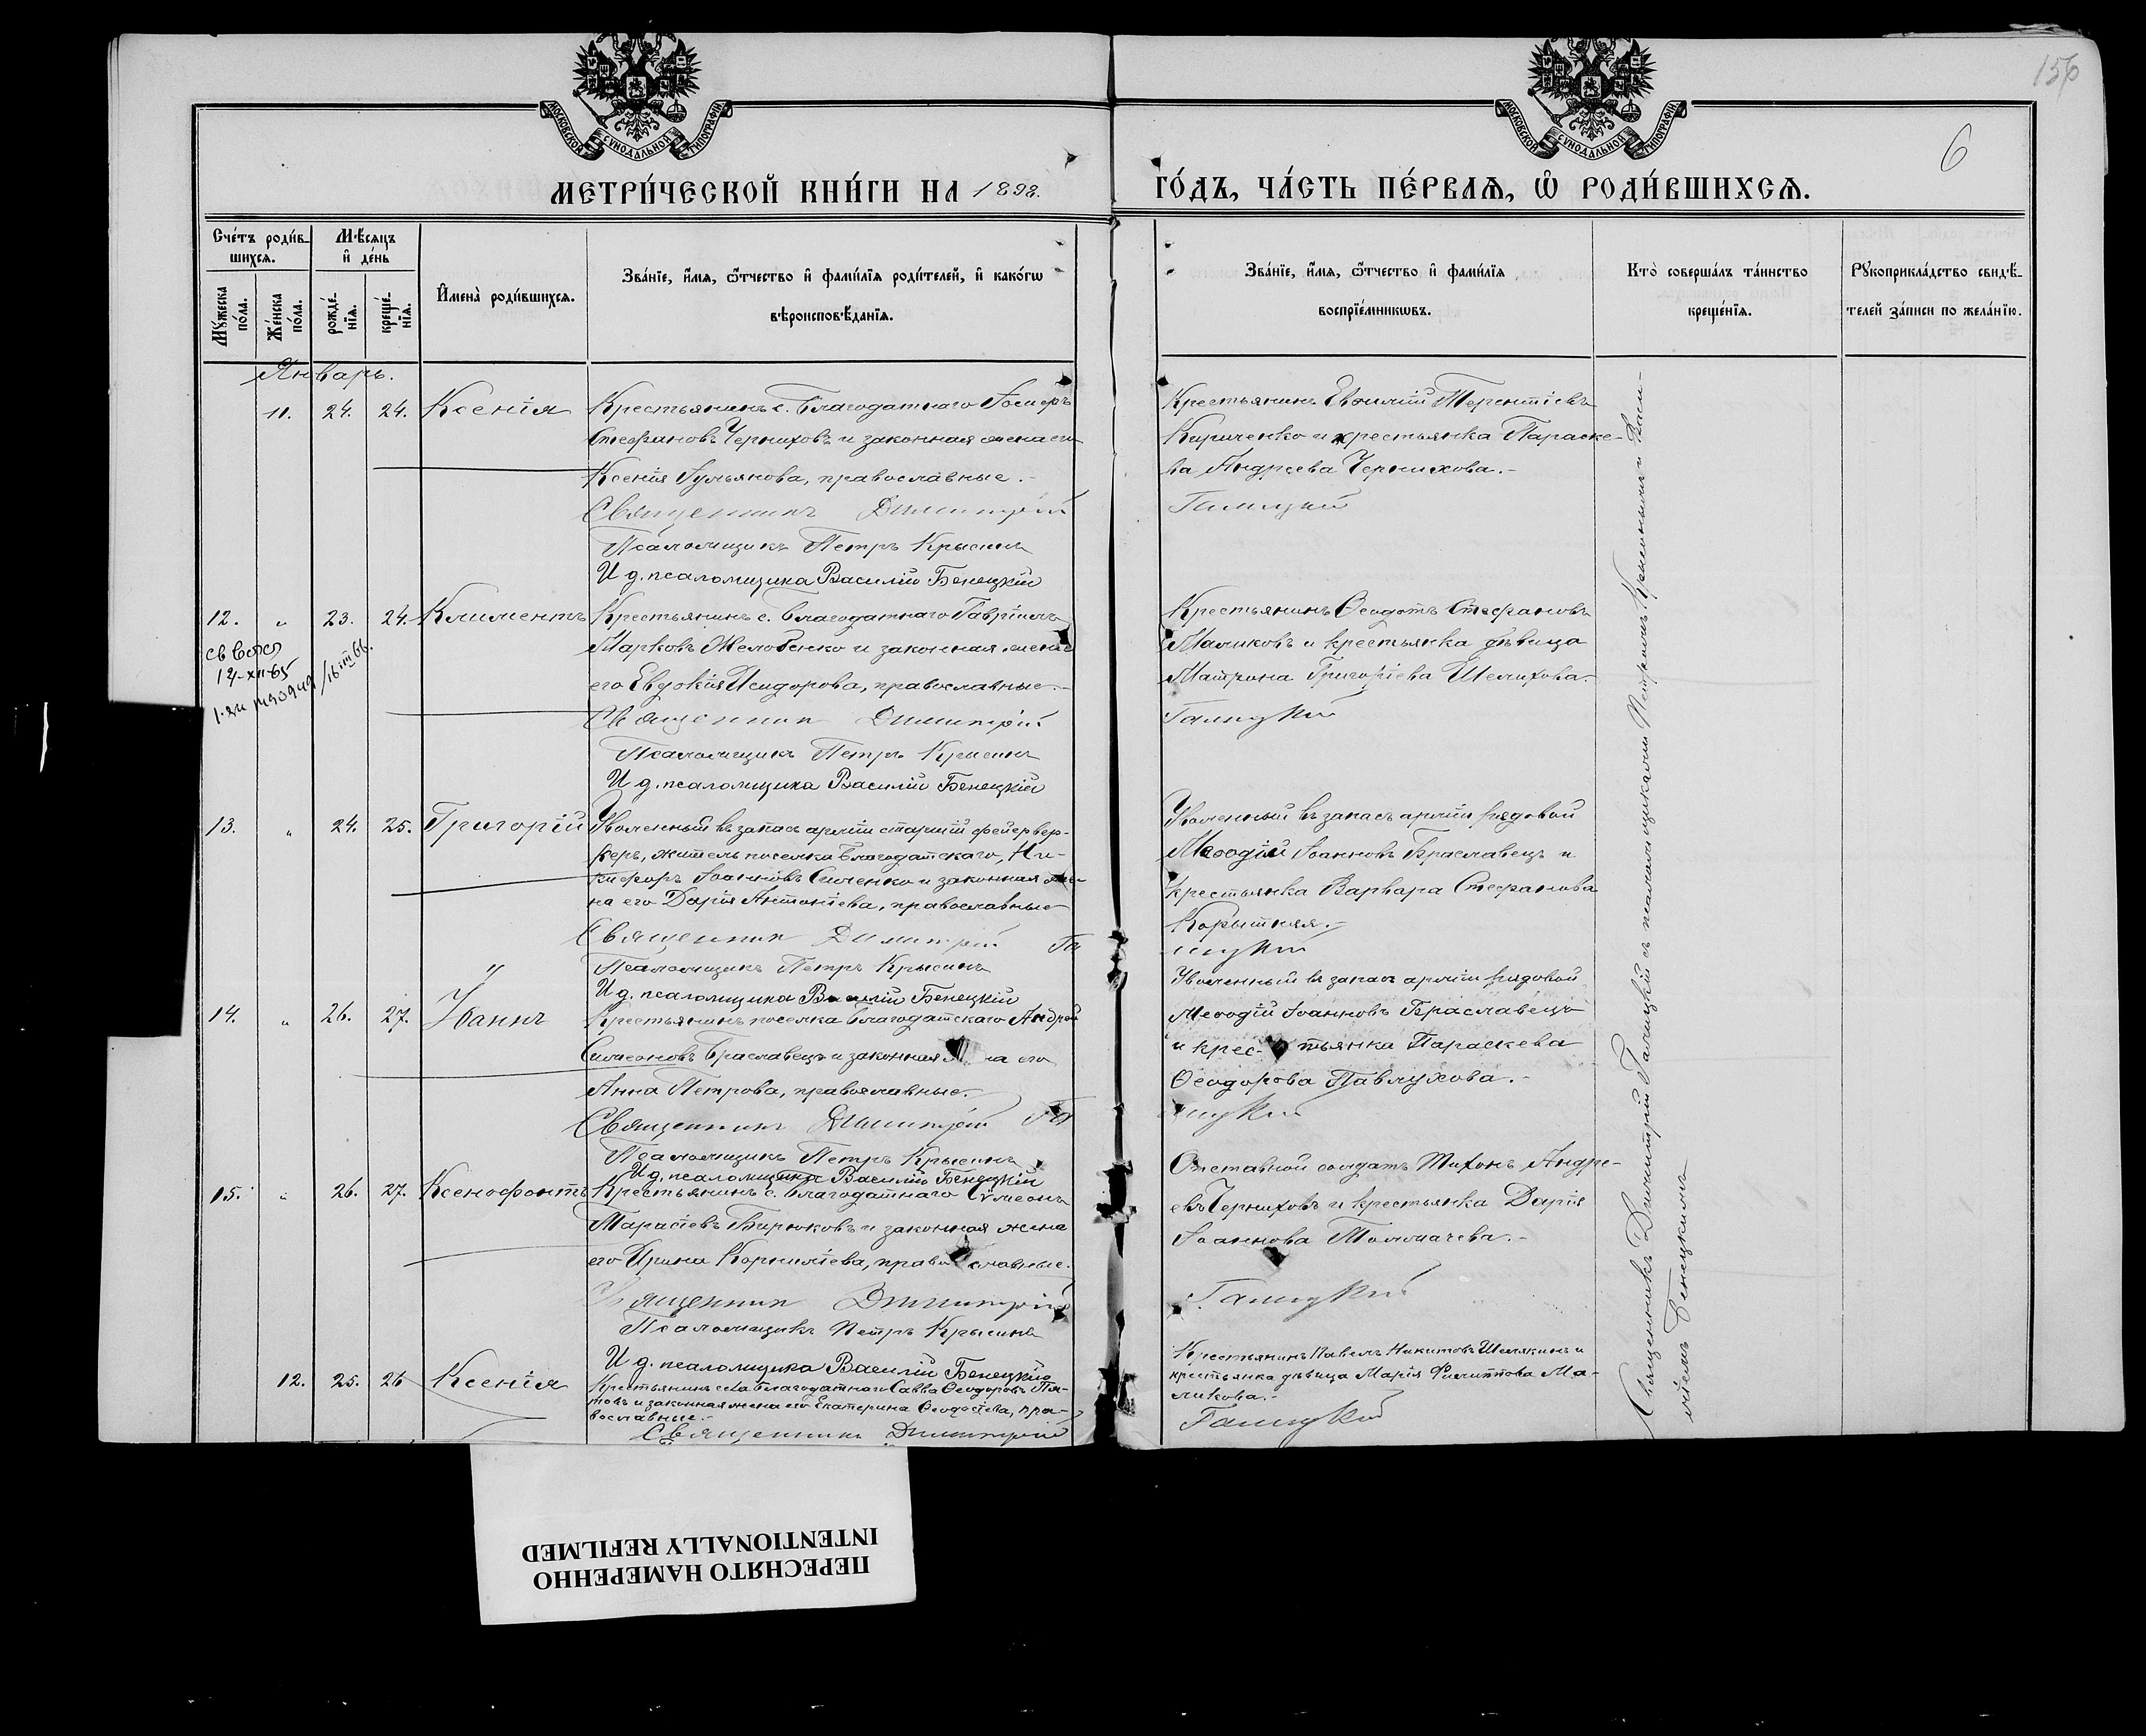 156
6
МОСКОВСКОЙ СѴНОДАЛЬНОЙ ТИПОГРАФІИ
МОСКОВСКОЙ СѴНОДАЛЬНОЙ ТИПОГРАФІИ
МЕТРИ́ЧЕСКОЙ КНИ́ГИ НА 1898. ГО́ДЪ, ЧА́СТЬ ПЕ́РВАѦ, Ѡ҆ РОДИ́ВШИХСѦ.
Сче́тъ роди́в-
шихсѧ.
Мѣ́сѧцъ
и҆ де́нь
Мꙋ́жеска
по́ла.
Же́нска
по́ла.
рожде́-
нїѧ.
креще́-
нїѧ.
И҆мена̀ роди́вшихсѧ.
Зва́нїе, и҆́мѧ, ѻ҆́тчество и҆ фами́лїѧ роди́телей, и҆ како́гѡ
вѣроисповѣ́данїѧ.
Зва́нїе, и҆́мѧ, ѻ҆́тчество и҆ фами́лїѧ
воспрїе́мникѡвъ.
Кто̀ соверша́лъ та́инство
креще́нїѧ.
Рꙋкоприкла́дство свидѣ́-
телей за́писи по жела́нїю.
Январь.
11. 24. 24. Ксенія
Крестьянинъ с. Благодатнаго Іосифъ
Стефановъ Черниховъ и законная жена его
Ксенія Гульянова, православные.-
Священникъ Димитрій
Псаломщикъ Петръ Крысинъ
И д. псаломщика Василій Бенецкій
Крестьянинъ Евфимій Терентіевъ
Кириченко и крестьянка Параске-
ва Андреева Чернихова.-
Галицкій
12. „ 23. 24. Климентъ
12-XII-65
Крестьянинъ с. Благодатнаго Гавріилъ
Марковъ Желобенко и законная жена
его Евдокія Исидорова, православные.-
Священник Димитрій
Псаломщикъ Петръ Крысинъ
И д. псаломщика Василій Бенецкій
Крестьянинъ Ѳеодотъ Стефановъ
Маликовъ и крестьянка дѣвица
Матрона Григоріева Шелихова.-
Галицкій
13. „ 24. 25. Григорій
Уволенный въ запасъ арміи старшій фейервер-
керъ, житель поселка Благодатскаго, Ни-
кифоръ Іоанновъ Силенко и законная же-
на его Дарія Антоніева, православные
Священник Димитрій Га
Псаломщикъ Петръ Крысинъ
И д. псаломщика Василій Бенецкій
Уволенный въ запасъ арміи рядовой
Меѳодій Іоанновъ Браславецъ и
крестьянка Варвара Стефанова
Корытняя.-
лицкій
14. „ 26. 27. Іоаннъ
Крестьянинъ поселка Благодатскаго Андрей
Симеоновъ Браславецъ и законная на его
Анна Петрова, православные.-
Священникъ Димитрій Га
Псаломщикъ Петръ Крысинъ
И д. псаломщика Василій Бенецкій
Уволенный въ запасъ арміи рядовой
Меѳодій Іоанновъ Браславецъ
и крес- тьянка Параскева
Ѳеодорова Павлухова.-
лицкій
15. „ 26. 27. Ксенофонтъ
Крестьянинъ с. Благодатнаго Сѵмеонъ
Тарасіевъ Бирюковъ и законная жена
его Ирина Корниліева, православные.
Священник Димитрій
Псаломщикъ Петръ Крысинъ
И д. псаломщика Василій Бенецкій
Отставной солдатъ Тихонъ Андре-
евъ Черниховъ и крестьянка Дарія
Іоаннова Толмачева.-
Галицкій
12. 25. 26 Ксенія
Крестьянинъ села Благодатнаго Савва Ѳеодоровъ
и законная жена его Екатерина Ѳеодосіева, пра-
вославные.-
Священникъ Димитрій
Крестьянинъ Павелъ Никитовъ Шелякинъ и
крестьянка дѣвица Марія Филиппова Ма-
ликова.-
Галицкій
Священникъ Димитрій Галицкій съ псаломщиками Петромъ Крысинымъ и Васи-
ліемъ Бенецкимъ
ПЕРЕСНЯТО НАМЕРЕННО
INTENTIONALLY REFILMED